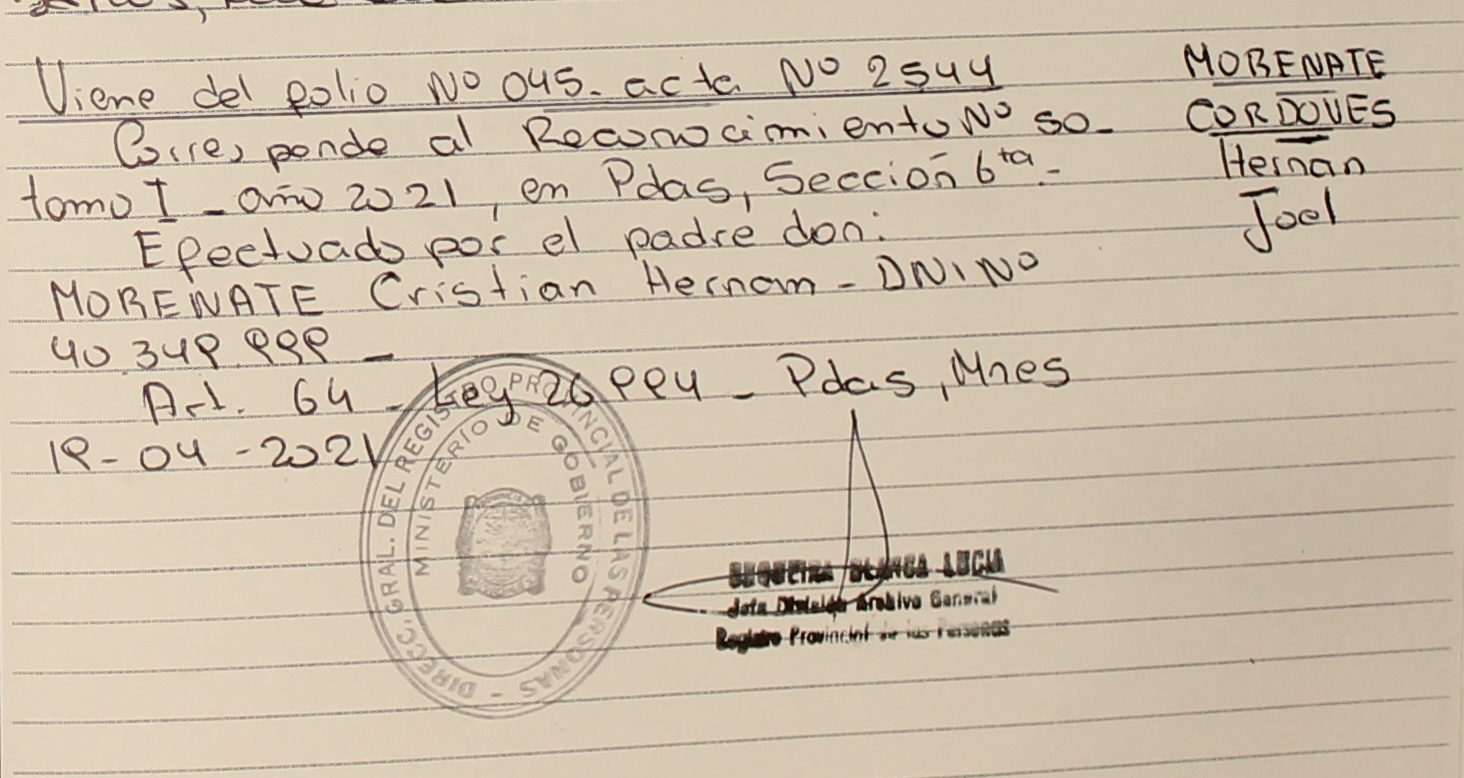 Viene del folio Nº 045. acta Nº 2544
Corresponde al Reconocimiento Nº 50-
tomo I - año 2021, en Pdas, Sección 6ta.-
Efectuado por el padre don:
MORENATE Cristian Hernam - DNI Nº
40.349.999 -
Art. 64 - Ley 26994 - Pdas, Mnes
19-04-2021
MORENATE
CORDOVES
Hernan
Joel
DIRECC. GRAL. DEL REGISTRO PROVINCIAL DE LAS PERSONAS -
MINISTERIO DE GOBIERNO
SEQUEIRA BLANCA LUCIA
Jefa División Archivo General
Registro Provincial de las Personas